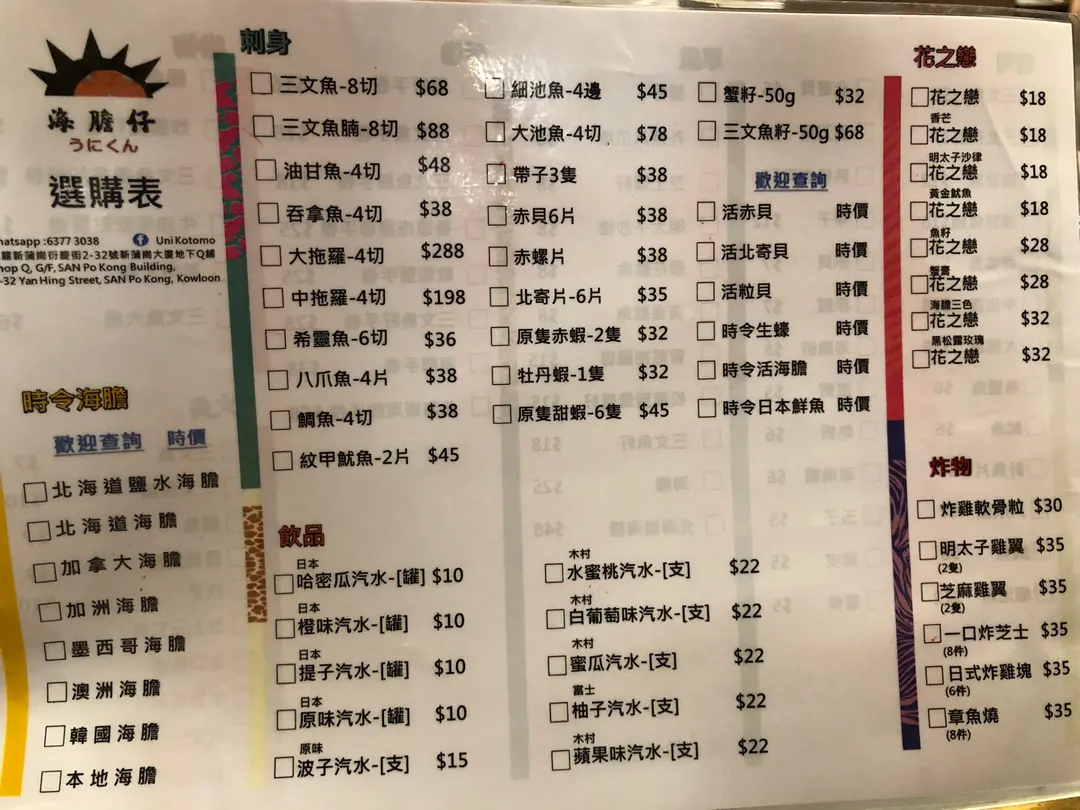 海膽仔
うにくん
選購表
hatsapp :6377 3038 Uni Kotomo
龍新蒲崗衍慶街2-32號新蒲崗大廈地下Q鋪
hop Q, G/F, SAN Po Kong Building,
-32 Yan Hing Street, SAN Po Kong, Kowloon
時令海膽
歡迎查詢 時價
北海道鹽水海膽
北海道海膽
加拿大海膽
加洲海膽
墨西哥海膽
澳洲海膽
韓國海膽
本地海膽
刺身
三文魚-8切 $68
三文魚腩-8切 $88
油甘魚-4切 $48
吞拿魚-4切 $38
大拖羅-4切 $288
中拖羅-4切 $198
希靈魚-6切 $36
八爪魚-4片 $38
鯛魚-4切 $38
紋甲魷魚-2片 $45
細池魚-4邊 $45
大池魚-4切 $78
帶子3隻 $38
赤貝6片 $38
赤螺片 $38
北寄片-6片 $35
原隻赤蝦-2隻 $32
牡丹蝦-1隻 $32
原隻甜蝦-6隻 $45
蟹籽-50g $32
三文魚籽-50g $68
歡迎查詢
活赤貝 時價
活北寄貝 時價
活粒貝 時價
時令生蠔 時價
時令活海膽 時價
時令日本鮮魚 時價
飲品
日本
哈密瓜汽水-[罐] $10
日本
橙味汽水-[罐] $10
日本
提子汽水-[罐] $10
日本
原味汽水-[罐] $10
原味
波子汽水-[支] $15
木村
水蜜桃汽水-[支] $22
木村
白葡萄味汽水-[支] $22
木村
蜜瓜汽水-[支] $22
富士
柚子汽水-[支] $22
木村
蘋果味汽水-[支] $22
花之戀
花之戀 $18
香芒
花之戀 $18
明太子沙律
花之戀 $18
黃金魷魚
花之戀 $18
魚籽
花之戀 $28
蟹膏
花之戀 $28
海膽三色
花之戀 $32
黑松露玫瑰
花之戀 $32
炸物
炸雞軟骨粒 $30
明太子雞翼 $35
(2隻)
芝麻雞翼 $35
(2隻)
一口炸芝士 $35
(8件)
日式炸雞塊 $35
(6件)
章魚燒 $35
(8件)